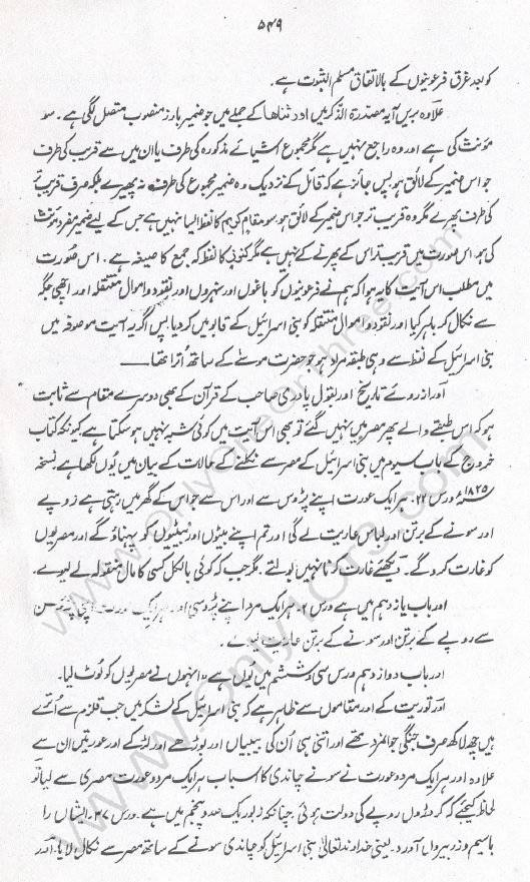 ۵۴۹
کو بعد غرق فرعونیوں کے بالاتفاق مسلم الثبوت ہے۔
علاوہ بریں آیہ مصدرۃ الذکر میں اورثناھا کے جملے میں جو ضمیر بارز منصوب متصل لگی ہے۔ سو
مؤنث کی ہے اور وہ راجع نہیں ہے مگر مجموع اشیائے مذکورہ کی طرف یا ان میں سے قریب کی طرف
جو اس ضمیر کے لائق ہو پس جائز ہے کہ قائل کے نزدیک وہ ضمیر مجموع کی طرف نہ پھرے بلکہ صرف قریب تر
کی طرف پھرے مگر وہ قریب تر جو اس ضمیر کے لائق ہو سو مقام کریم کا لفظ ایسا نہیں ہے جس کے لیے ضمیر مفرد مؤنث
کی ہو اس صورت میں قریب تر اس کے پھرنے کے نہیں ہے مگر کنوز کا لفظ کہ جمع کا صیغہ ہے۔ اس صورت
میں مطلب اس آیت کا یہ ہوا کہ ہم نے فرعونیوں کو باغوں اور نہروں اور نقود و اموال منتقلہ اور اچھی جگہ
سے نکال کر باہر کیا اور نقود و اموال منتقلہ کو بنی اسرائیل کے قابو میں کر دیا۔ پس اگر یہ آیت موصوفہ میں
بنی اسرائیل کے لفظ سے وہی طبقہ مراد ہو جو حضرت موسیٰ کے ساتھ اُترا تھا۔
اور از روئے تاریخ اور بقول پادری صاحب کے قرآن کے بھی دوسرے مقام سے ثابت
ہو کہ اس طبقے والے پھر مصر میں نہیں گئے تو بھی اس آیت میں کوئی شبہ نہیں ہو سکتا ہے کیونکہ کتاب
خروج کے باب سیوم میں بنی اسرائیل کے مصر سے نکلنے کے حالات کے بیان میں یوں لکھا ہے نسخہ
۱۸۲۵ء ورس ۲۲۔ ہر ایک عورت اپنے پڑوس سے اور اس سے جو اس کے گھر میں رہتی ہے روپے
اور سونے کے برتن اور لباس عاریت لے گی اور تم اپنے بیٹوں اور بیٹیوں کو پہناؤ گے اور مصریوں
کو غارت کرو گے۔ دیکھئے غارت کرنا نہیں بولتے۔ مگر جب کہ کوئی بالکل کسی کا مال منقولہ لے لیوے۔
اور باب یازدہم میں ہے ورس ۲۔ ہر ایک مرد اپنے پڑوسی اور ہر ایک عورت اپنی پڑوسن
سے روپے کے برتن اور سونے کے برتن عاریت لیوے۔
اور باب دوازدہم ورس سی و ششم میں یوں ہے۔ انہوں نے مصریوں کو لوٹ لیا۔
اور توریت کے اور مقاموں سے ظاہر ہے کہ بنی اسرائیل کے لشکر میں جب قلزم سے اُترے
ہیں چھ لاکھ صرف جنگی جوانمرد تھے اور اتنی ہی اُن کی بیبیاں اور بوڑھے اور لڑکے اور عورتیں ان سے
علاوہ اور ہر ایک مرد و عورت نے سونے چاندی کا اسباب ہر ایک مرد و عورت مصری سے لیا تو
لحاظ کیجئے کہ کروڑوں روپے کی دولت ہوئی۔ چنانچہ زبور یک صد و پنجم میں ہے۔ ورس ۳۷۔ ایشاں را
باسیم و زر بیرواں آورد۔ یعنی خداوند تعالیٰ بنی اسرائیل کو چاندی سونے کے ساتھ مصر سے نکال لایا۔ اور
www.only1or3.com
www.onlyoneorthree.com